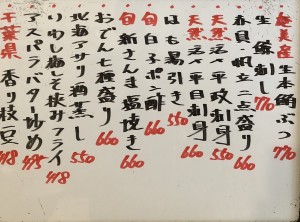 奄美産 生本鮪ぶつ 770
生鯵刺し 770
春貝・帆立二点盛り
天然 活〆平政刺身 660
天然 活〆平目刺身 660
はも湯引き 550
旬 白子ポン酢 660
旬 新さんま塩焼き 660
おでん七種盛り 660
北海アサリ酒蒸し 550
いわし梅しそ挟みフライ 418
アスパラバター炒め 495
千葉県 香り枝豆 418